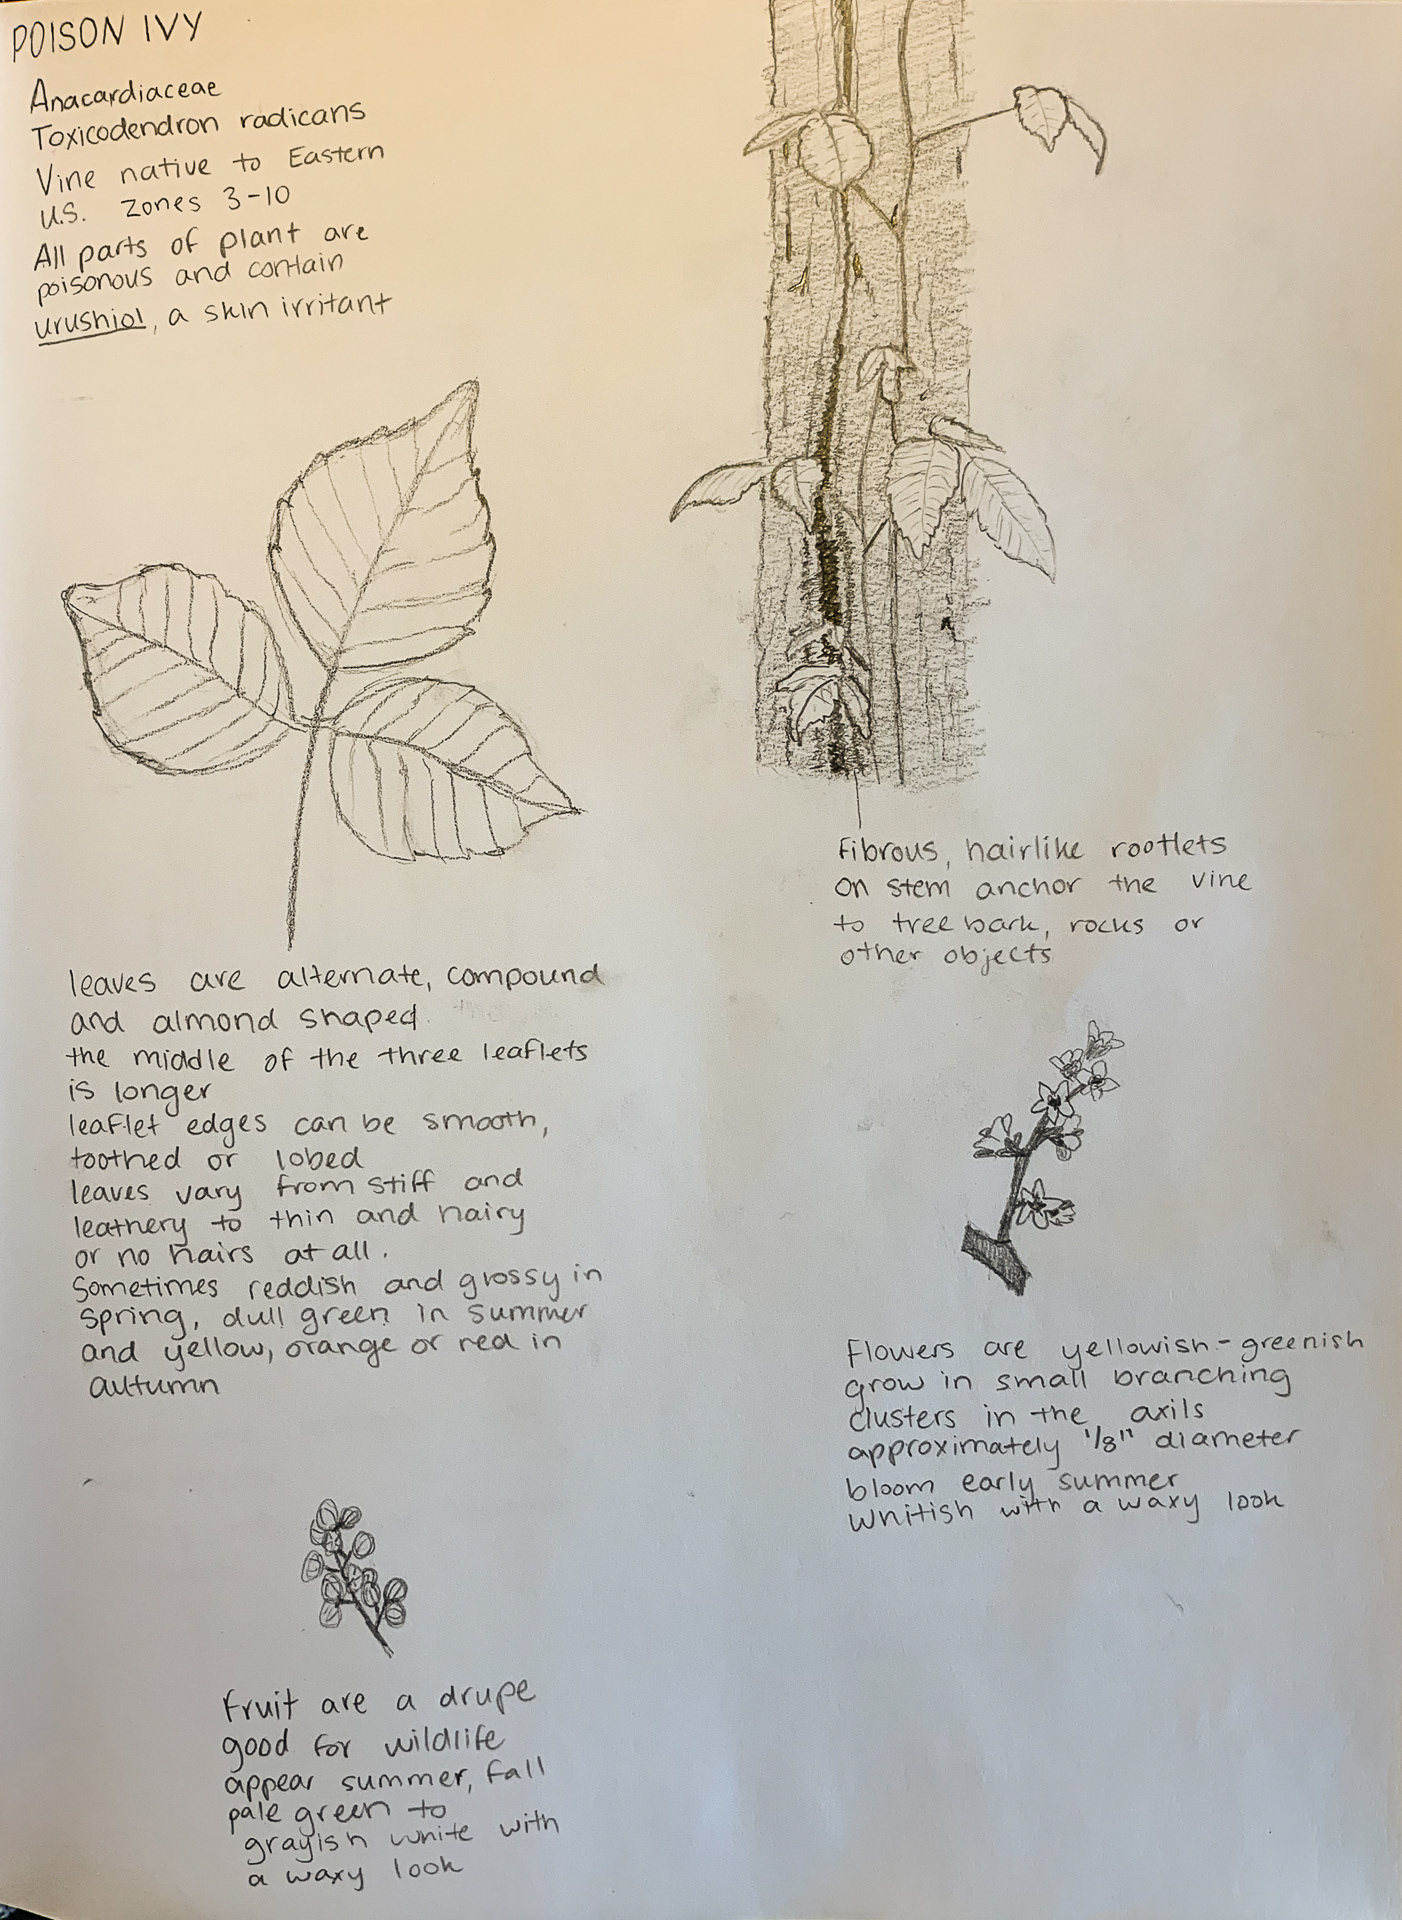 POISON IVY
Anacardiaceae
Toxicodendron radicans
Vine native to Eastern
U.S. Zones 3-10
All parts of plant are
poisonous and contain
urushiol, a skin irritant
Fibrous, hairlike rootlets
on stem anchor the vine
to tree bark, rocks or
other objects
leaves are alternate, compound
and almond shaped
the middle of the three leaflets
is longer
leaflet edges can be smooth,
toothed or lobed
leaves vary from stiff and
leathery to thin and hairy
or no hairs at all.
Sometimes reddish and glossy in
spring, dull green in summer
and yellow, orange or red in
autumn
Flowers are yellowish-greenish
grow in small branching
clusters in the axils
approximately 1/8" diameter
bloom early summer
whitish with a waxy look
Fruit are a drupe
good for wildlife
appear summer, fall
pale green to
grayish white with
a waxy look